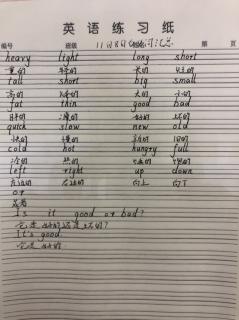 英语练习纸
编号 班级 11月8日 词汇总 第 页
heavy light long short
重的 轻的 长的 短的
tall short big small
高的 矮的 大的 小的
fat thin good bad
胖的 瘦的 好的 坏的
quick slow new old
快的 慢的 新的 旧的
cold hot hungry full
冷的 热的 饿的 饱的
left right up down
左边的 右边的 向上 向下
or
或者
Is it good or bad?
它是好的还是坏的?
It's good.
它是好的